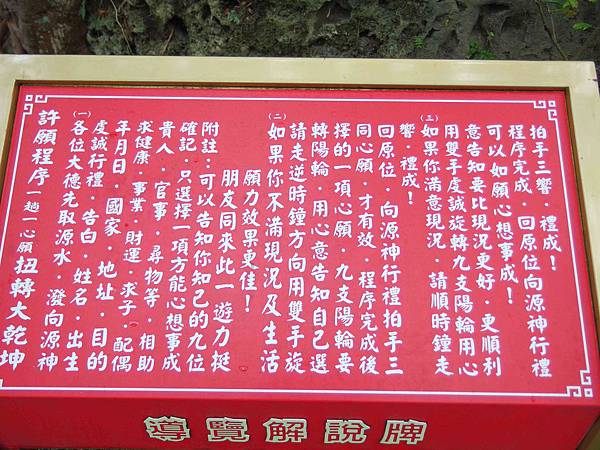 許願程序 一趟一心願 扭轉大乾坤
(一)各位大德先取源水．潑向源神
虔誠行禮．告白．姓名．出生
年月日．國家．地址．目的
求健康．事業．財運．求子．配偶
貴人．官事．尋物等．相助
確記：只選擇一項方能心想事成
附註：可以告知你知己的九位
朋友同來此一遊力挺
願力效果更佳！
(二)如果你不滿現況及生活
請走逆時鐘方向用雙手旋
轉陽輪．用心意告知自己選
擇的一項心願．九支陽輪要
同心願．才有效．程序完成後
回原位．向源神行禮拍手三
響．禮成！
(三)如果你滿意現況．請順時鐘走
用雙手虔誠旋轉九支陽輪用心
意告知要比現況更好．更順利
可以如願心想事成！
程序完成．回原位向源神行禮
拍手三響．禮成！
導覽解說牌